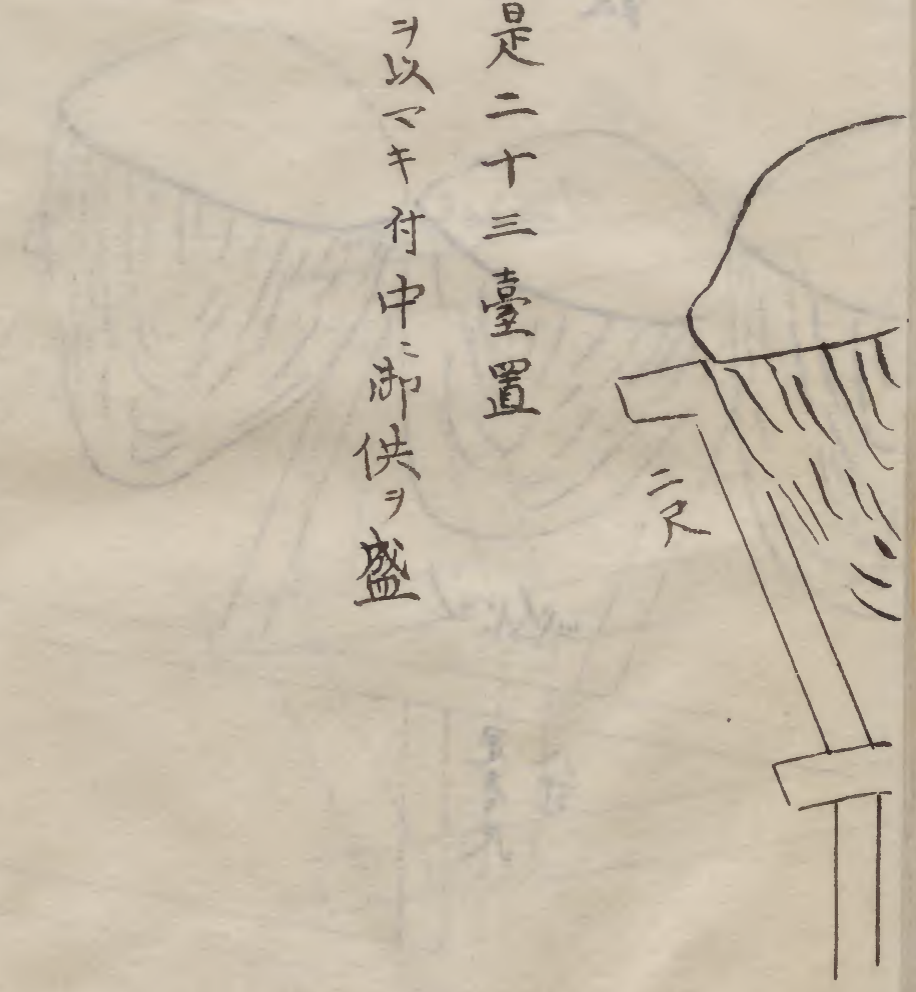 二尺
是二十三臺置
ヲ以マキ付中ニ御供ヲ盛